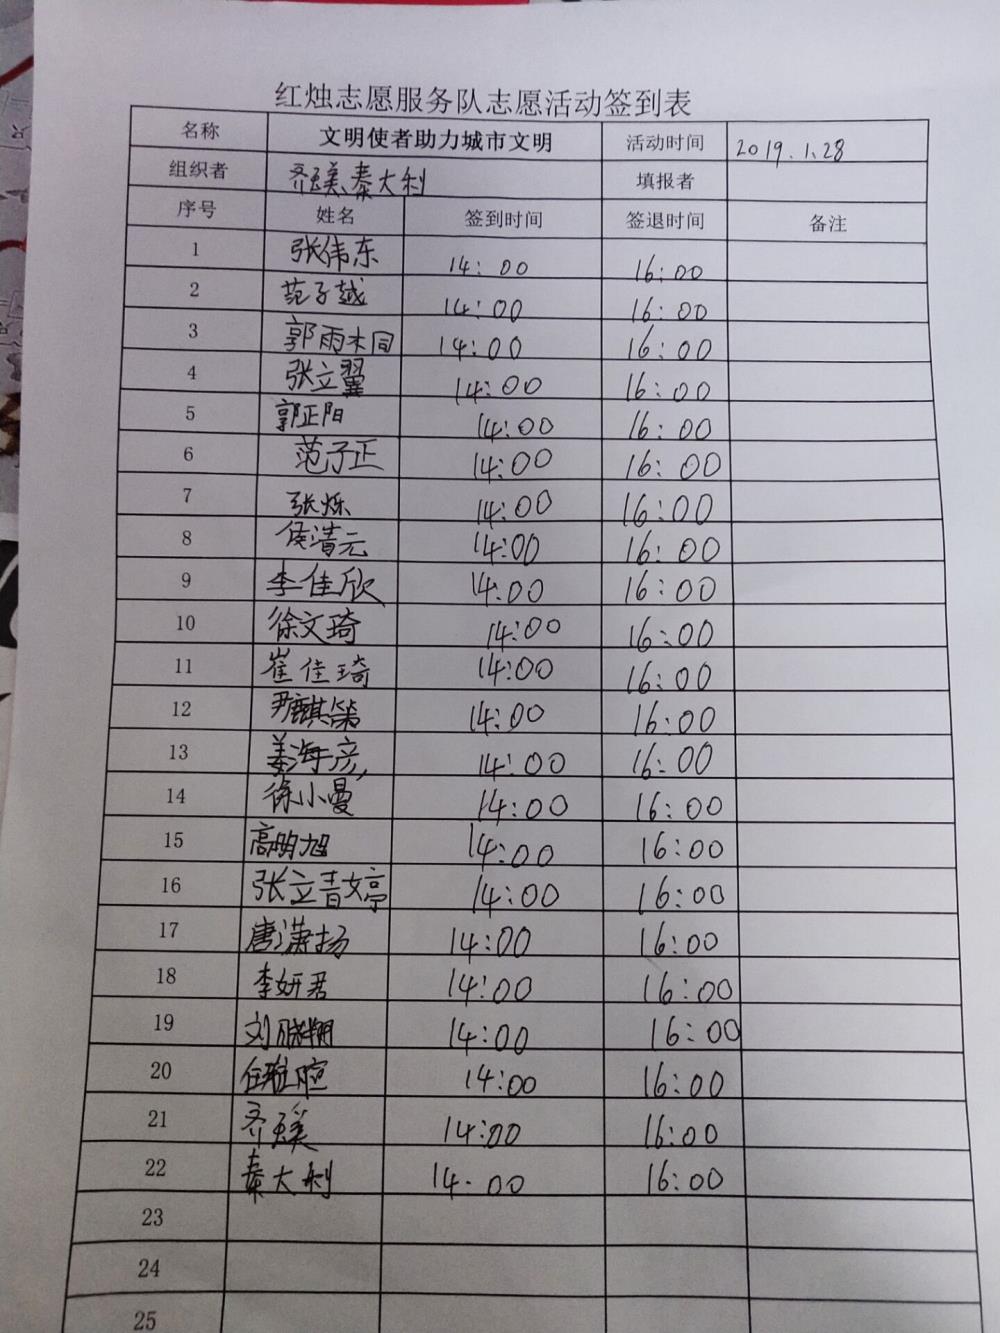 红烛志愿服务队志愿活动签到表
名称 文明使者助力城市文明 活动时间 2019.1.28
组织者 齐瑛、秦大利 填报者
序号 姓名 签到时间 签退时间 备注
1 张伟东 14:00 16:00
2 范子越 14:00 16:00
3 郭雨木同 14:00 16:00
4 张立翼 14:00 16:00
5 郭正阳 14:00 16:00
6 范子正 14:00 16:00
7 张烁 14:00 16:00
8 侯清元 14:00 16:00
9 李佳欣 14:00 16:00
10 徐文琦 14:00 16:00
11 崔佳琦 14:00 16:00
12 14:00 16:00
13 姜海彦 14:00 16:00
14 徐小曼 14:00 16:00
15 高明旭 14:00 16:00
16 张立青婷 14:00 16:00
17 唐潇扬 14:00 16:00
18 李妍君 14:00 16:00
19 14:00 16:00
20 14:00 16:00
21 14:00 16:00
22 秦大利 14.00 16:00
23
24
25